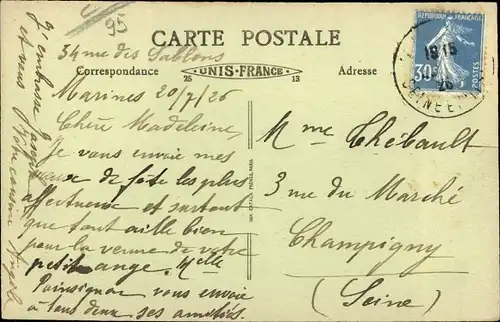 95
CARTE POSTALE
34 rue des Sablons
Correspondance
UNIS-FRANCE
25
13
Adresse
RÉPUBLIQUE FRANÇAISE
30c
POSTES
18 15
26
SEINE ET
Marines 20/7/26
Chère Madeleine,
Je vous envoie mes
vœux de fête les plus
affectueux et surtout
que tout aille bien
pour la venue de votre
petit ange. Melle
vous envoie
à tous deux ses amitiés.
J'embrasse
et vous
Votre cousine
Mme Thébault
3 rue du Marché
Champigny
(Seine)